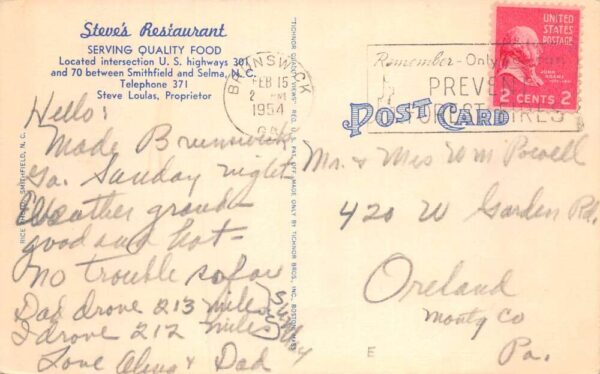 Steve's Restaurant
SERVING QUALITY FOOD
Located intersection U. S. highways 301
and 70 between Smithfield and Selma, N. C.
Telephone 371
Steve Loulas, Proprietor
BRUNSWICK
FEB 15
2 PM
1954
GA.
Remember-Only
PREVENT
FIRES
UNITED
STATES
POSTAGE
JOHN
ADAMS
2 CENTS 2
POST CARD
Hello:
Made Brunswick
Ga. Sunday night
Weather grand-
good and hot-
No trouble so far
Dad drove 213 miles
I drove 212 miles
Love & Dad
RICE SMITHFIELD, N. C.
TICHNOR QUALITY VIEWS REG. U. S. PAT. OFF. MADE ONLY BY TICHNOR BROS., INC., BOSTON, MASS.
Mr. & Mrs Wm Powell
420 W Garden Rd.
Oreland
Montg Co
Pa.
E